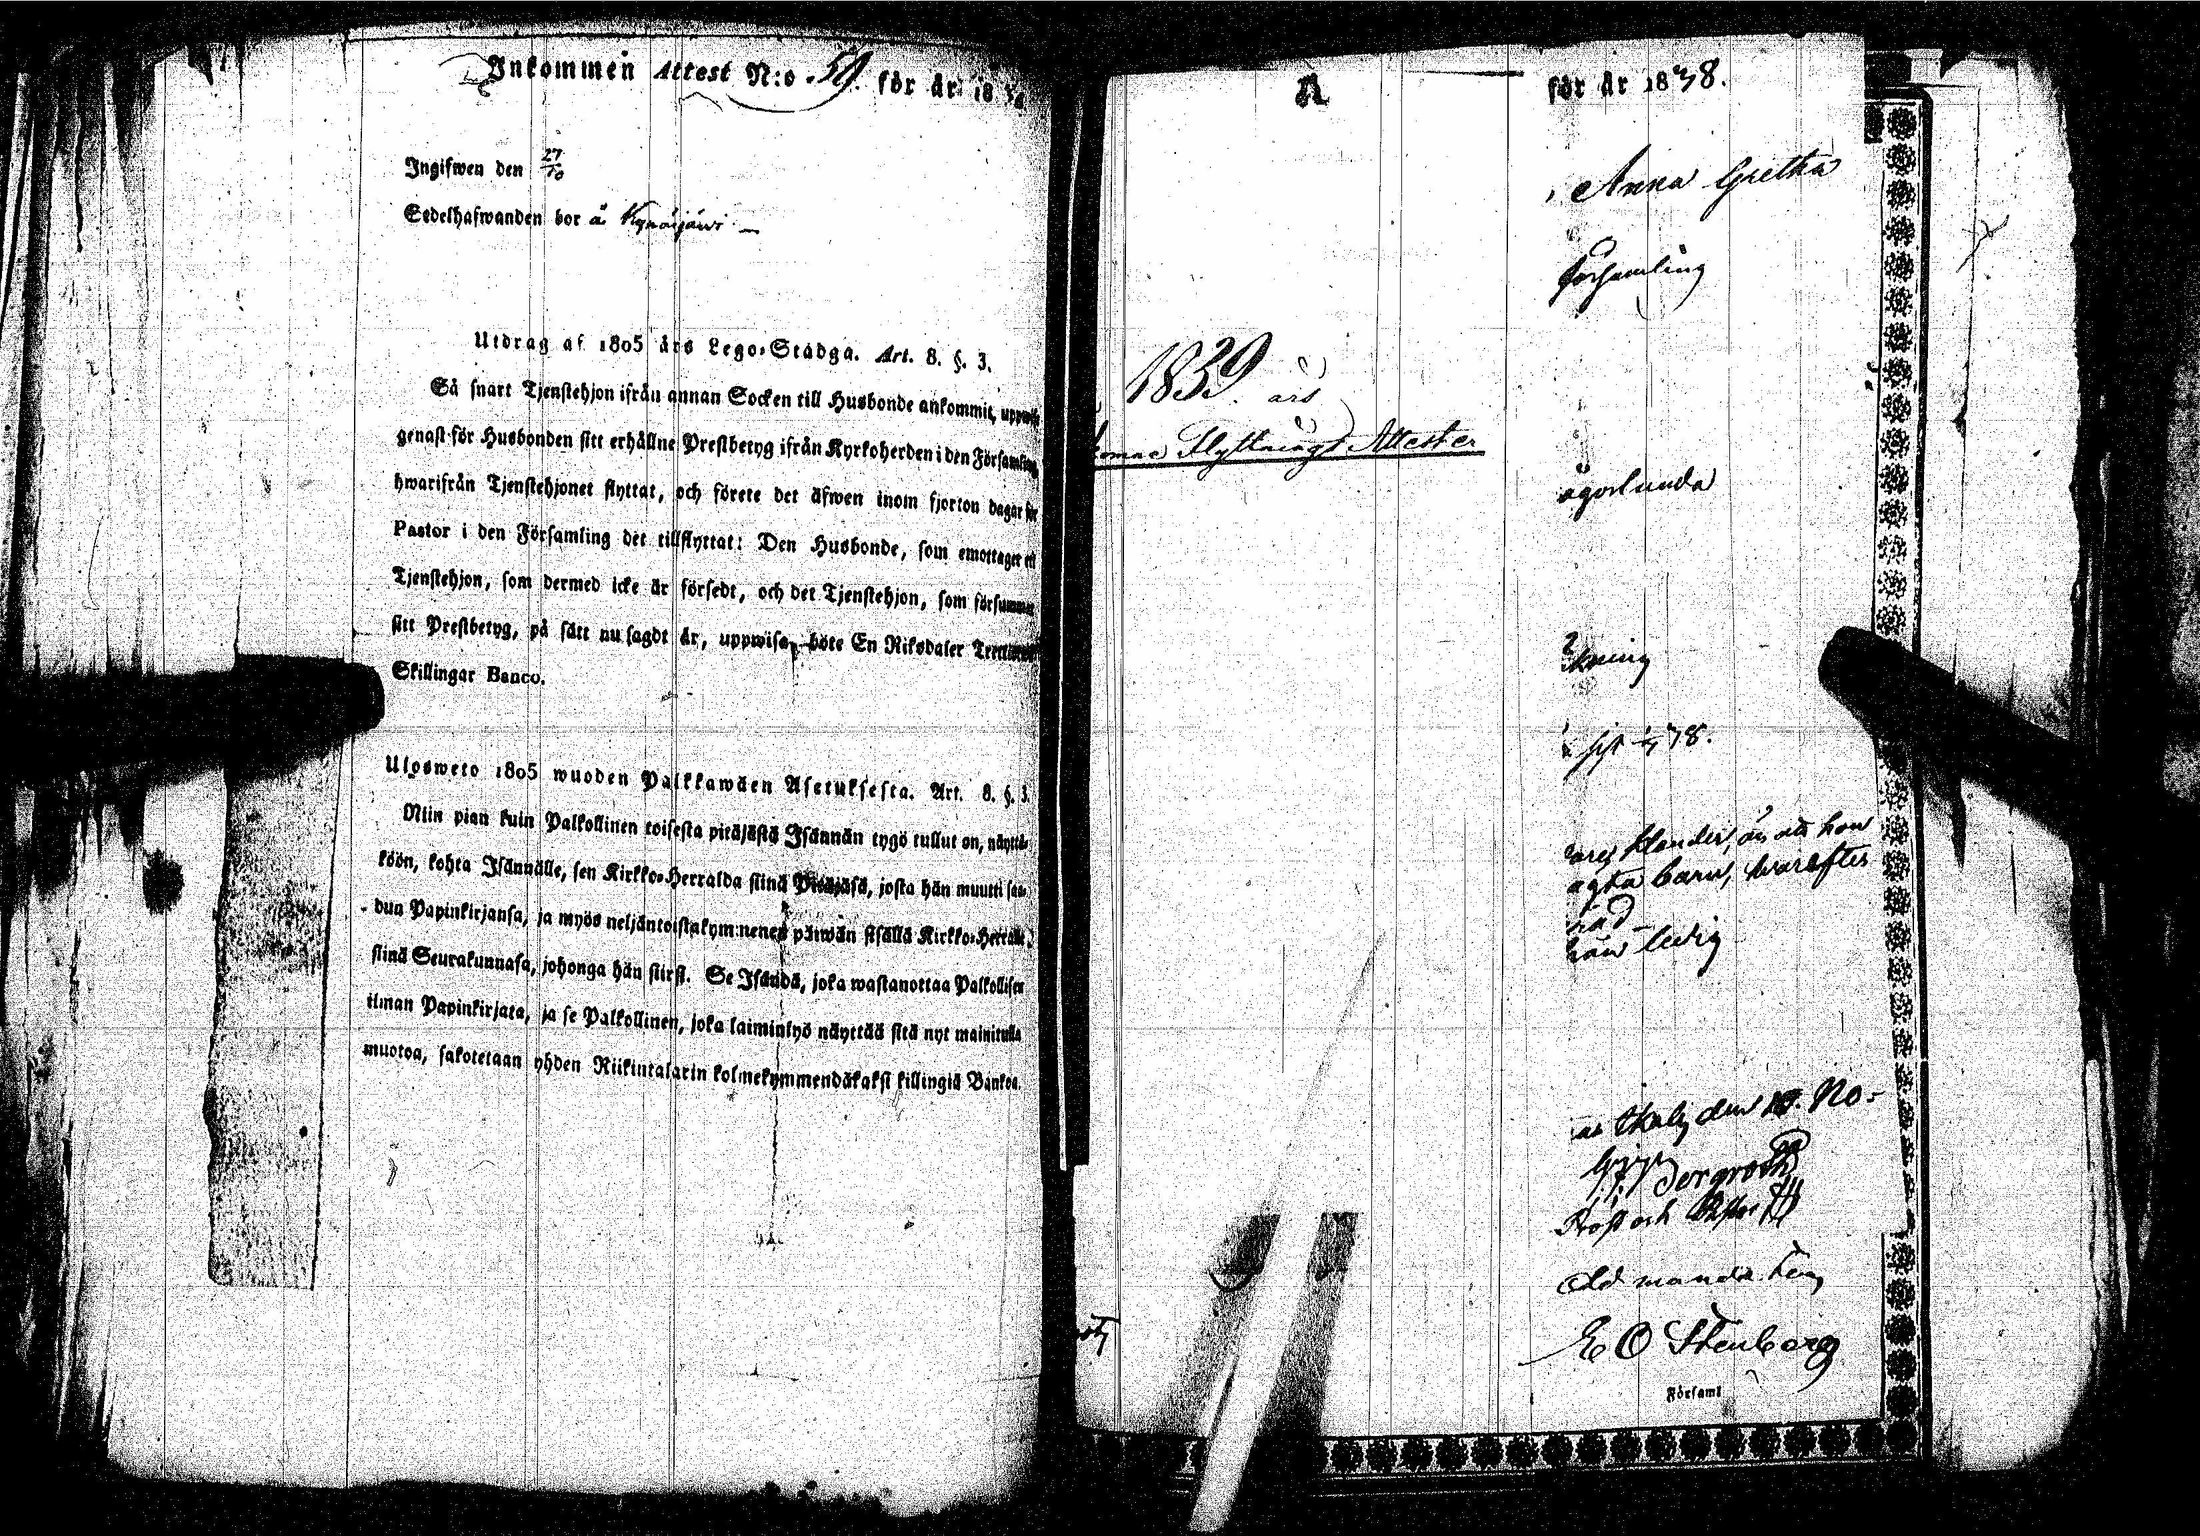 Inkommen Attest N:o 59. för år 18
Ingifwen den 27/10
Sedelhafwanden bor å Kyröisjärvi
Utdrag af 1805 års Lego-Stadga. Art. 8. §. 3.
Så snart Tjenstehjon ifrån annan Socken till Husbonde ankommit,
genast för Husbonden sitt erhållne Prestbetyg ifrån Kyrkoherden i den Församling
hwarifrån Tjenstehjonet flyttat, och förete det äfwen inom fjorton dagar för
Pastor i den Församling det tillflyttat: Den Husbonde, som emottager ett
Tjenstehjon, som dermed icke är försedt, och det Tjenstehjon, som försummat
sitt Prestbetyg, på sätt nu sagdt är, uppwisa, böte En Riksdaler
Skillingar Banco.
Ulosweto 1805 wuoden Palkkawäen Asetuksesta. Art. 8. §. 3.
Niin pian kuin Palkollinen toisesta pitäjästä Isännän tygö tullut on, näyttä-
köön, kohta Isännälle, sen Kirkko-Herralda siinä Pitäjäsä, josta hän muutti saa-
dun Papinkirjansa, ja myös neljäntoistakymmenen päiwän sisällä Kirkko-Herralle,
siinä Seurakunnasa, johonga hän siirsi. Se Isändä, joka wastanottaa Palkollisen
ilman Papinkirjata, ja se Palkollinen, joka laiminlyö näyttää sitä nyt mainitulla
muotoa, sakotetaan yhden Riikintalarin kolmekymmendäkaksi killingiä Bankoa.
1839. års
Flyttnings Attester
för år 1838.
Anna Gretha
Församling
ägorlunda
kning
78.
klander, än att hon
ägta barn, hvarefter
ledig
den No-
Bergroth
Prost och
Ad mandatum
E O Stenberg
Församl